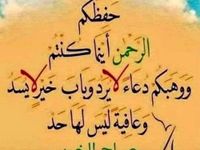 حَفِظَكُم
الرحمن أينما كنتم
وَوَهَبَكُم دعاءً لا يرد وباب خيرٍ لا يسد
وعافية ليس لها حد